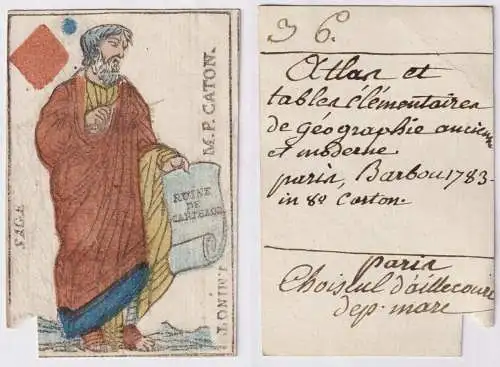 SAGE
M.P. CATON.
RUINE
DE
CARTHAGE
36.
Atlas et
tables élémentaires
de géographie ancienne
et moderne
paris, Barbou 1783-
in 8º Carton.
paris
Choiseul d'aillecourt
dep. mare